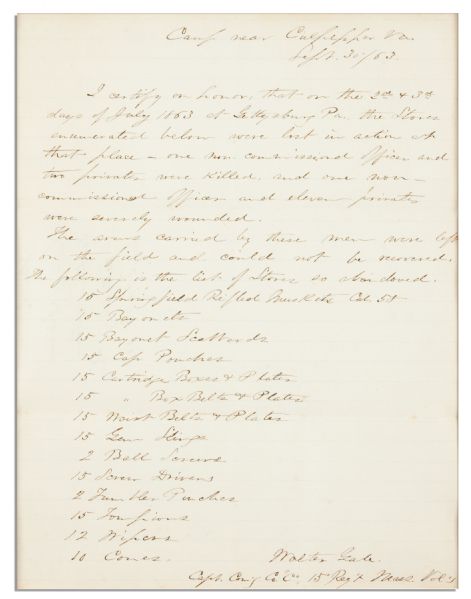 Camp near Culpepper Va.
Sept. 30/63.
I certify on honor, that on the 2d & 3d
days of July 1863 at Gettysburg Pa. the Stores
enumerated below were lost in action at
that place - one non commissioned officer and
two privates were killed, and one non-
commissioned officer and eleven privates
were severely wounded.
The arms carried by these men were left
on the field and could not be recovered.
The following is the list of Stores so abandoned.
15 Springfield Rifled Muskets Cal 58
15 Bayonets
15 Bayonet Scabbards
15 Cap Pouches
15 Cartridge Boxes & Plates
15 " Box Belts & Plates
15 Waist Belts & Plates
15 Gun Slings
2 Ball Screws
15 Screw Drivers
2 Tumbler Punches
15 Tompions
12 Wipers
10 Cones.
Walter Gale.
Capt. Comg Co C 15 Regt Mass. Vols